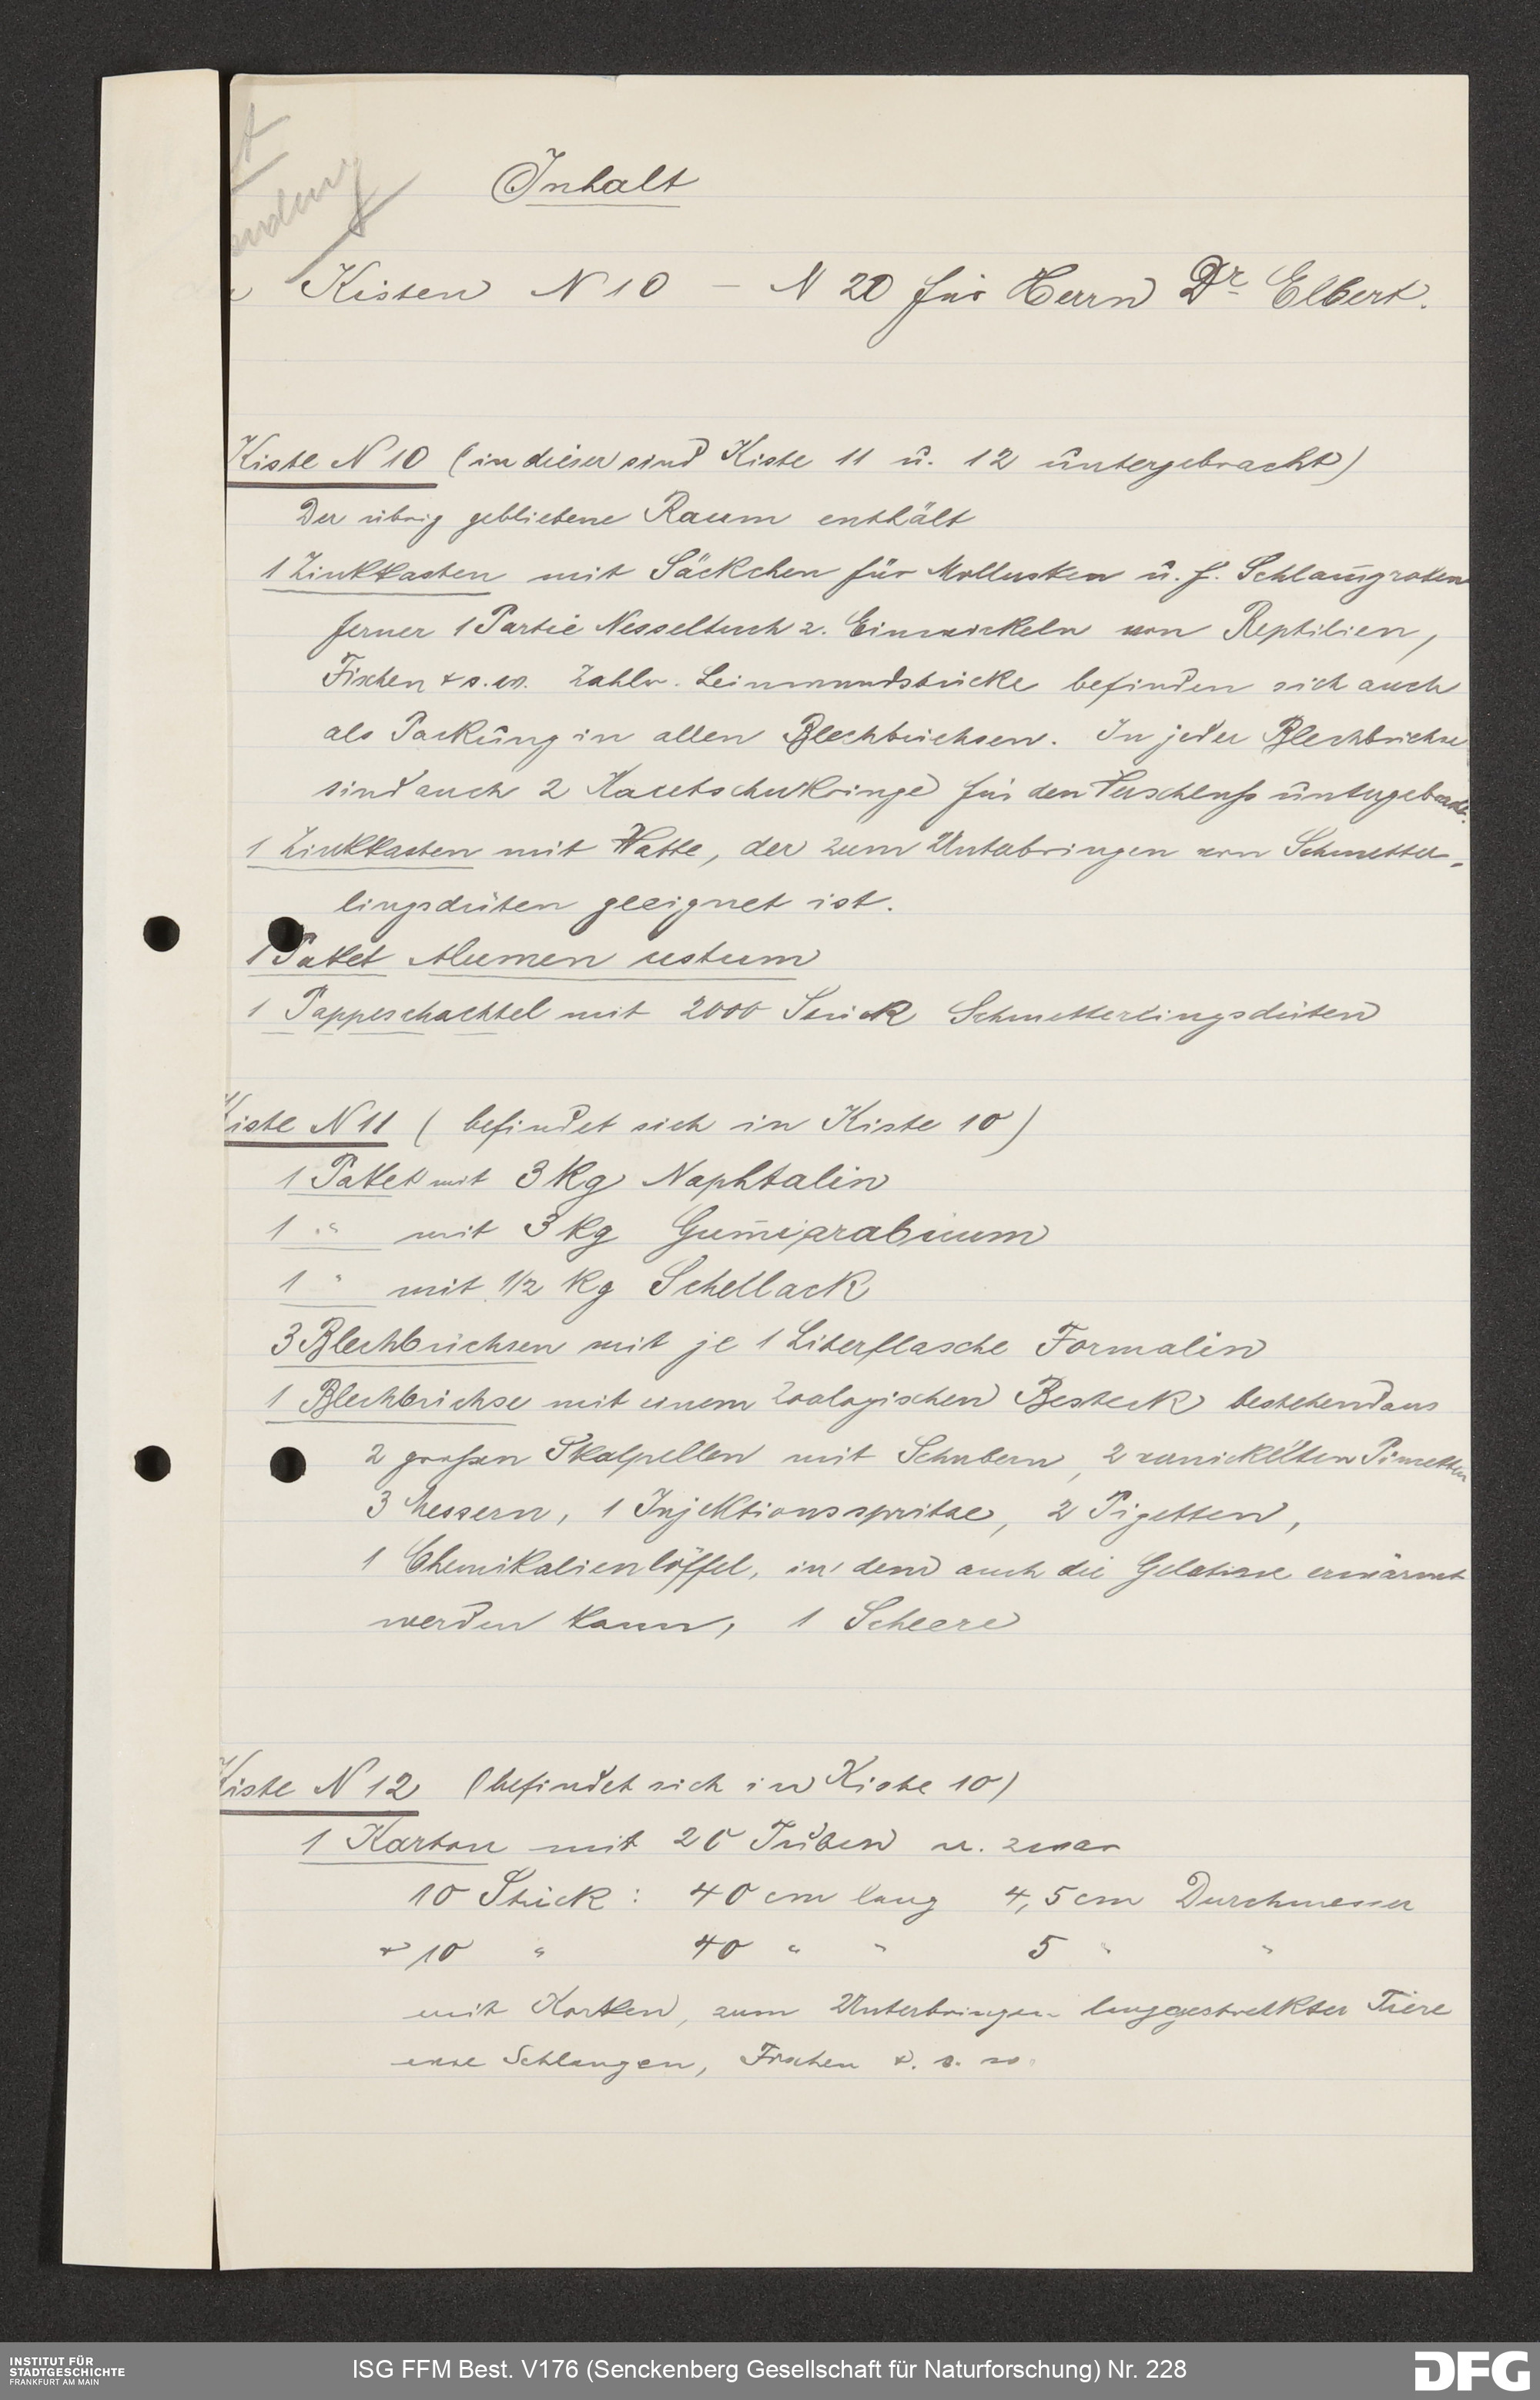 Inhalt
Kisten N 10 – N 20 für Herrn Dr. Elbert.
Kiste N 10 (in dieser sind Kiste 11 u. 12 untergebracht)
Der übrig gebliebene Raum enthält
1 Zinkkasten mit Säckchen für Mollusken u. f. Schlam̄proben
ferner 1 Partie Nesseltuch z. Einwickeln von Reptilien,
Fischen u.s.w. Zahlr. Leinwandstücke befinden sich auch
als Packung in allen Blechbüchsen. In jeder Blechbüchse
sind auch 2 Kautschukringe für den Verschluß untergebracht.
1 Zinkkasten mit Watte, der zum Unterbringen von Schmetter-
lingsdüten geeignet ist.
1 Paket Alumen ustum
1 Pappeschachtel mit 2000 Stück Schmetterlingsdüten
Kiste N 11 (befindet sich in Kiste 10)
1 Paket mit 3 Kg Naphtalin
1 " mit 3 kg Gum̄iarabicum
1 " mit 1/2 Kg Schellack
3 Blechbüchsen mit je 1 Literflasche Formalin
1 Blechbüchse mit einem zoologischen Besteck bestehend aus
2 großen Skalpellen mit Schubern, 2 vernickelten Pinzetten
3 Messern, 1 Injektionsspritze, 2 Pipetten,
1 Chemikalienlöffel, in dem auch die Gelatine erwärmt
werden kann, 1 Scheere
Kiste N 12 (befindet sich in Kiste 10)
1 Karton mit 20 Tuben u. zwar
10 Stück: 40 cm lang 4,5 cm Durchmesser
u 10 " 40 " " 5 " "
mit Korken, zum Unterbringen langgestreckter Tiere
wie Schlangen, Fischen u. s. w.
INSTITUT FÜR
STADTGESCHICHTE
FRANKFURT AM MAIN
ISG FFM Best. V176 (Senckenberg Gesellschaft für Naturforschung) Nr. 228
DFG